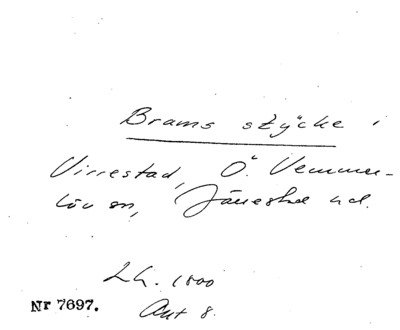 Brams stycke i
Virrestad, Ö. Vemmen-
löv sn, Järrestad hd.
Lh. 1800
Nr 7697. Akt 8.